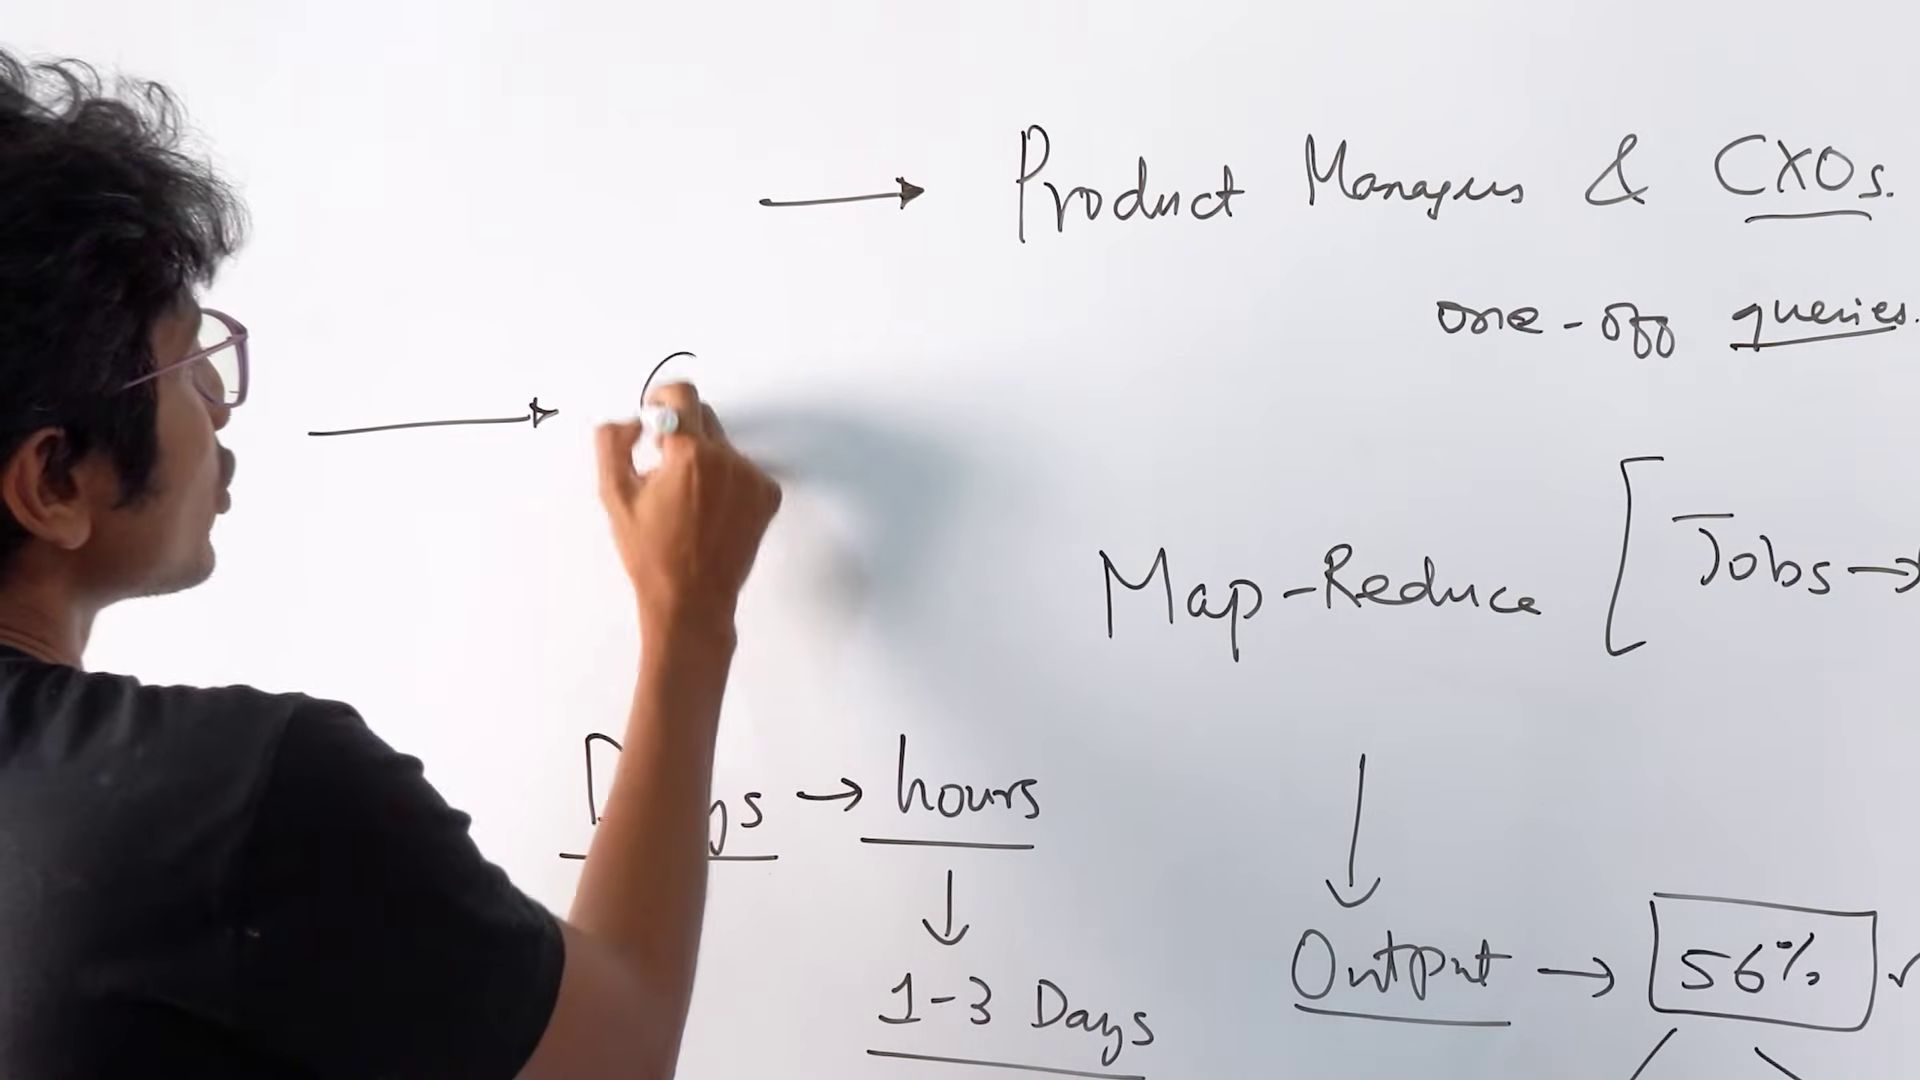 → Product Managers & CXOs.
one-off queries.
→
Map-Reduce [ Jobs →
→ hours
↓
1-3 Days
↓
Output → 56%